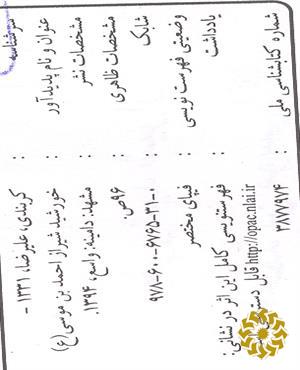 سرشناسه : کربندی، علیرضا، ۱۳۳۱ -
عنوان و نام پدیدآور : خورشید شیراز احمد بن موسی (ع)
مشخصات نشر : مشهد: دامینه: واسع، ۱۳۹۴.
مشخصات ظاهری : ۹۶ص
شابک : ۹۷۸-۶۰۰-۶۷۶۵-۳۱-۰
وضعیت فهرست نویسی : فیپای مختصر
یادداشت : فهرستنویسی کامل این اثر در نشانی:
http://opac.nlai.ir قابل
شماره کتابشناسی ملی : ۳۸۷۷۹۷۴